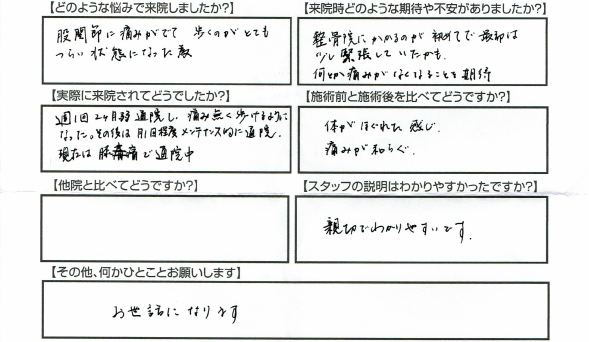 【どのような悩みで来院しましたか?】
股関節に痛みがでて 歩くのがとても
つらい状態になった為
【来院時どのような期待や不安がありましたか?】
整骨院にかかるのが初めてで最初は
少し緊張していたかも。
何とか痛みがなくなることを期待
【実際に来院されてどうでしたか?】
週1回2ヶ月弱通院し、痛み無く歩けるように
なった。その後は月1回程度メンテナンス的に通院。
現在は膝痛で通院中
【施術前と施術後を比べてどうですか?】
体がほぐれた感じ。
痛みが和らぐ。
【他院と比べてどうですか?】
【スタッフの説明はわかりやすかったですか?】
親切でわかりやすいです。
【その他、何かひとことお願いします】
お世話になります